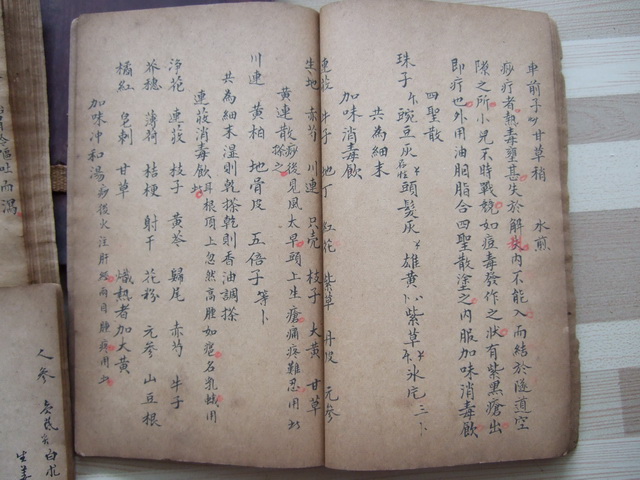 車前子 甘草稍 水煎
痧疔者熱毒壅甚失於解 內不能入而結於隧道空
隙之所小兒不時戰兢如痘毒發作之狀有紫黑瘡出
即疔也外用油胭脂合四聖散塗之內服加味消毒飲
四聖散
珠子 豌豆灰 頭髮灰 雄黃 紫草 冰片 三
共為細末
加味消毒飲
連莪 牛子 地丁 紅花 紫草 丹皮 元參
生地 赤芍 川連 只壳 枝子 大黃 甘草
黃連散搽之 痧後見風太早頭上生瘡痛疼難忍用
川連 黃柏 地骨皮 五倍子 等
共為細末濕則乾搽乾則香油調搽
連莪消毒飲 耳根頂上忽然高腫如 名乳 用
淨花 連莪 枝子 黃芩 歸尾 赤芍 牛子
芥穗 薄荷 桔梗 射干 花粉 元參 山豆根
橘紅 皂刺 甘草 熾熱者加大黃
加味沖和湯 痧後火注肝經兩目腫痛用
人參 白朮
生姜
吐而瀉